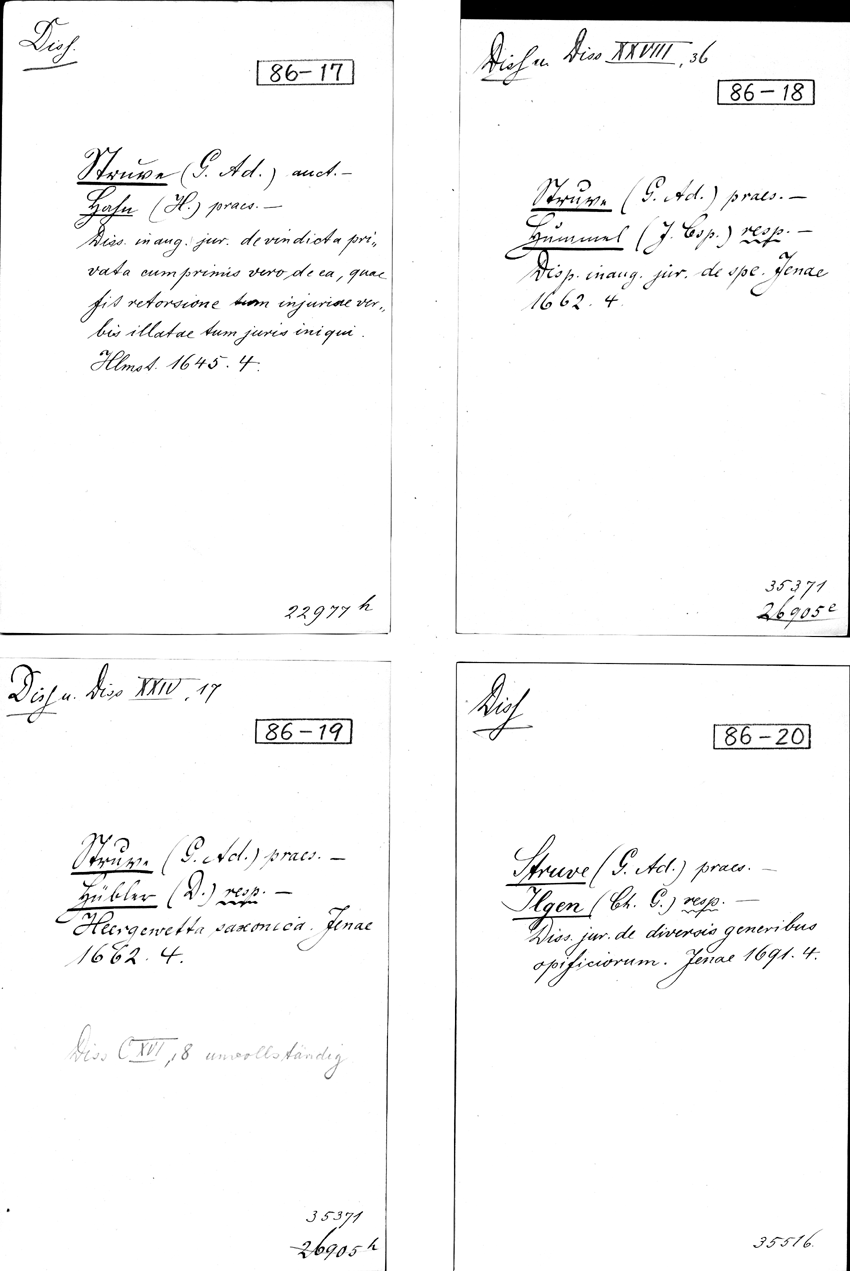 Diss.
86-17
Struve (G. Ad.) auct. —
Hahn (H.) praes. —
Diss. inaug. jur. de vindicta pri„
vata cumprimis vero, de ea, quae
fit retorsione tum injuriae ver„
bis illatae tum juris iniqui.
Hlmst. 1645. 4.
22977 h
Diss u. Diss XXVIII, 36
86-18
Struve (G. Ad.) praes. —
Hummel (J. Csp.) resp. —
Disp. inaug. jur. de spe. Jenae
1662. 4.
35371
26905 e
Diss u. Diss XXIV, 17
86-19
Struve (G. Ad.) praes. —
Hübler (D.) resp. —
Heergewetta saxonica. Jenae
1662. 4.
Diss CXVI, 8 unvollständig
35371
26905 h
Diss
86-20
Struve (G. Ad.) praes. —
Ilgen (Ch. G.) resp. —
Diss. jur. de diversis generibus
opificiorum. Jenae 1691. 4.
35516.